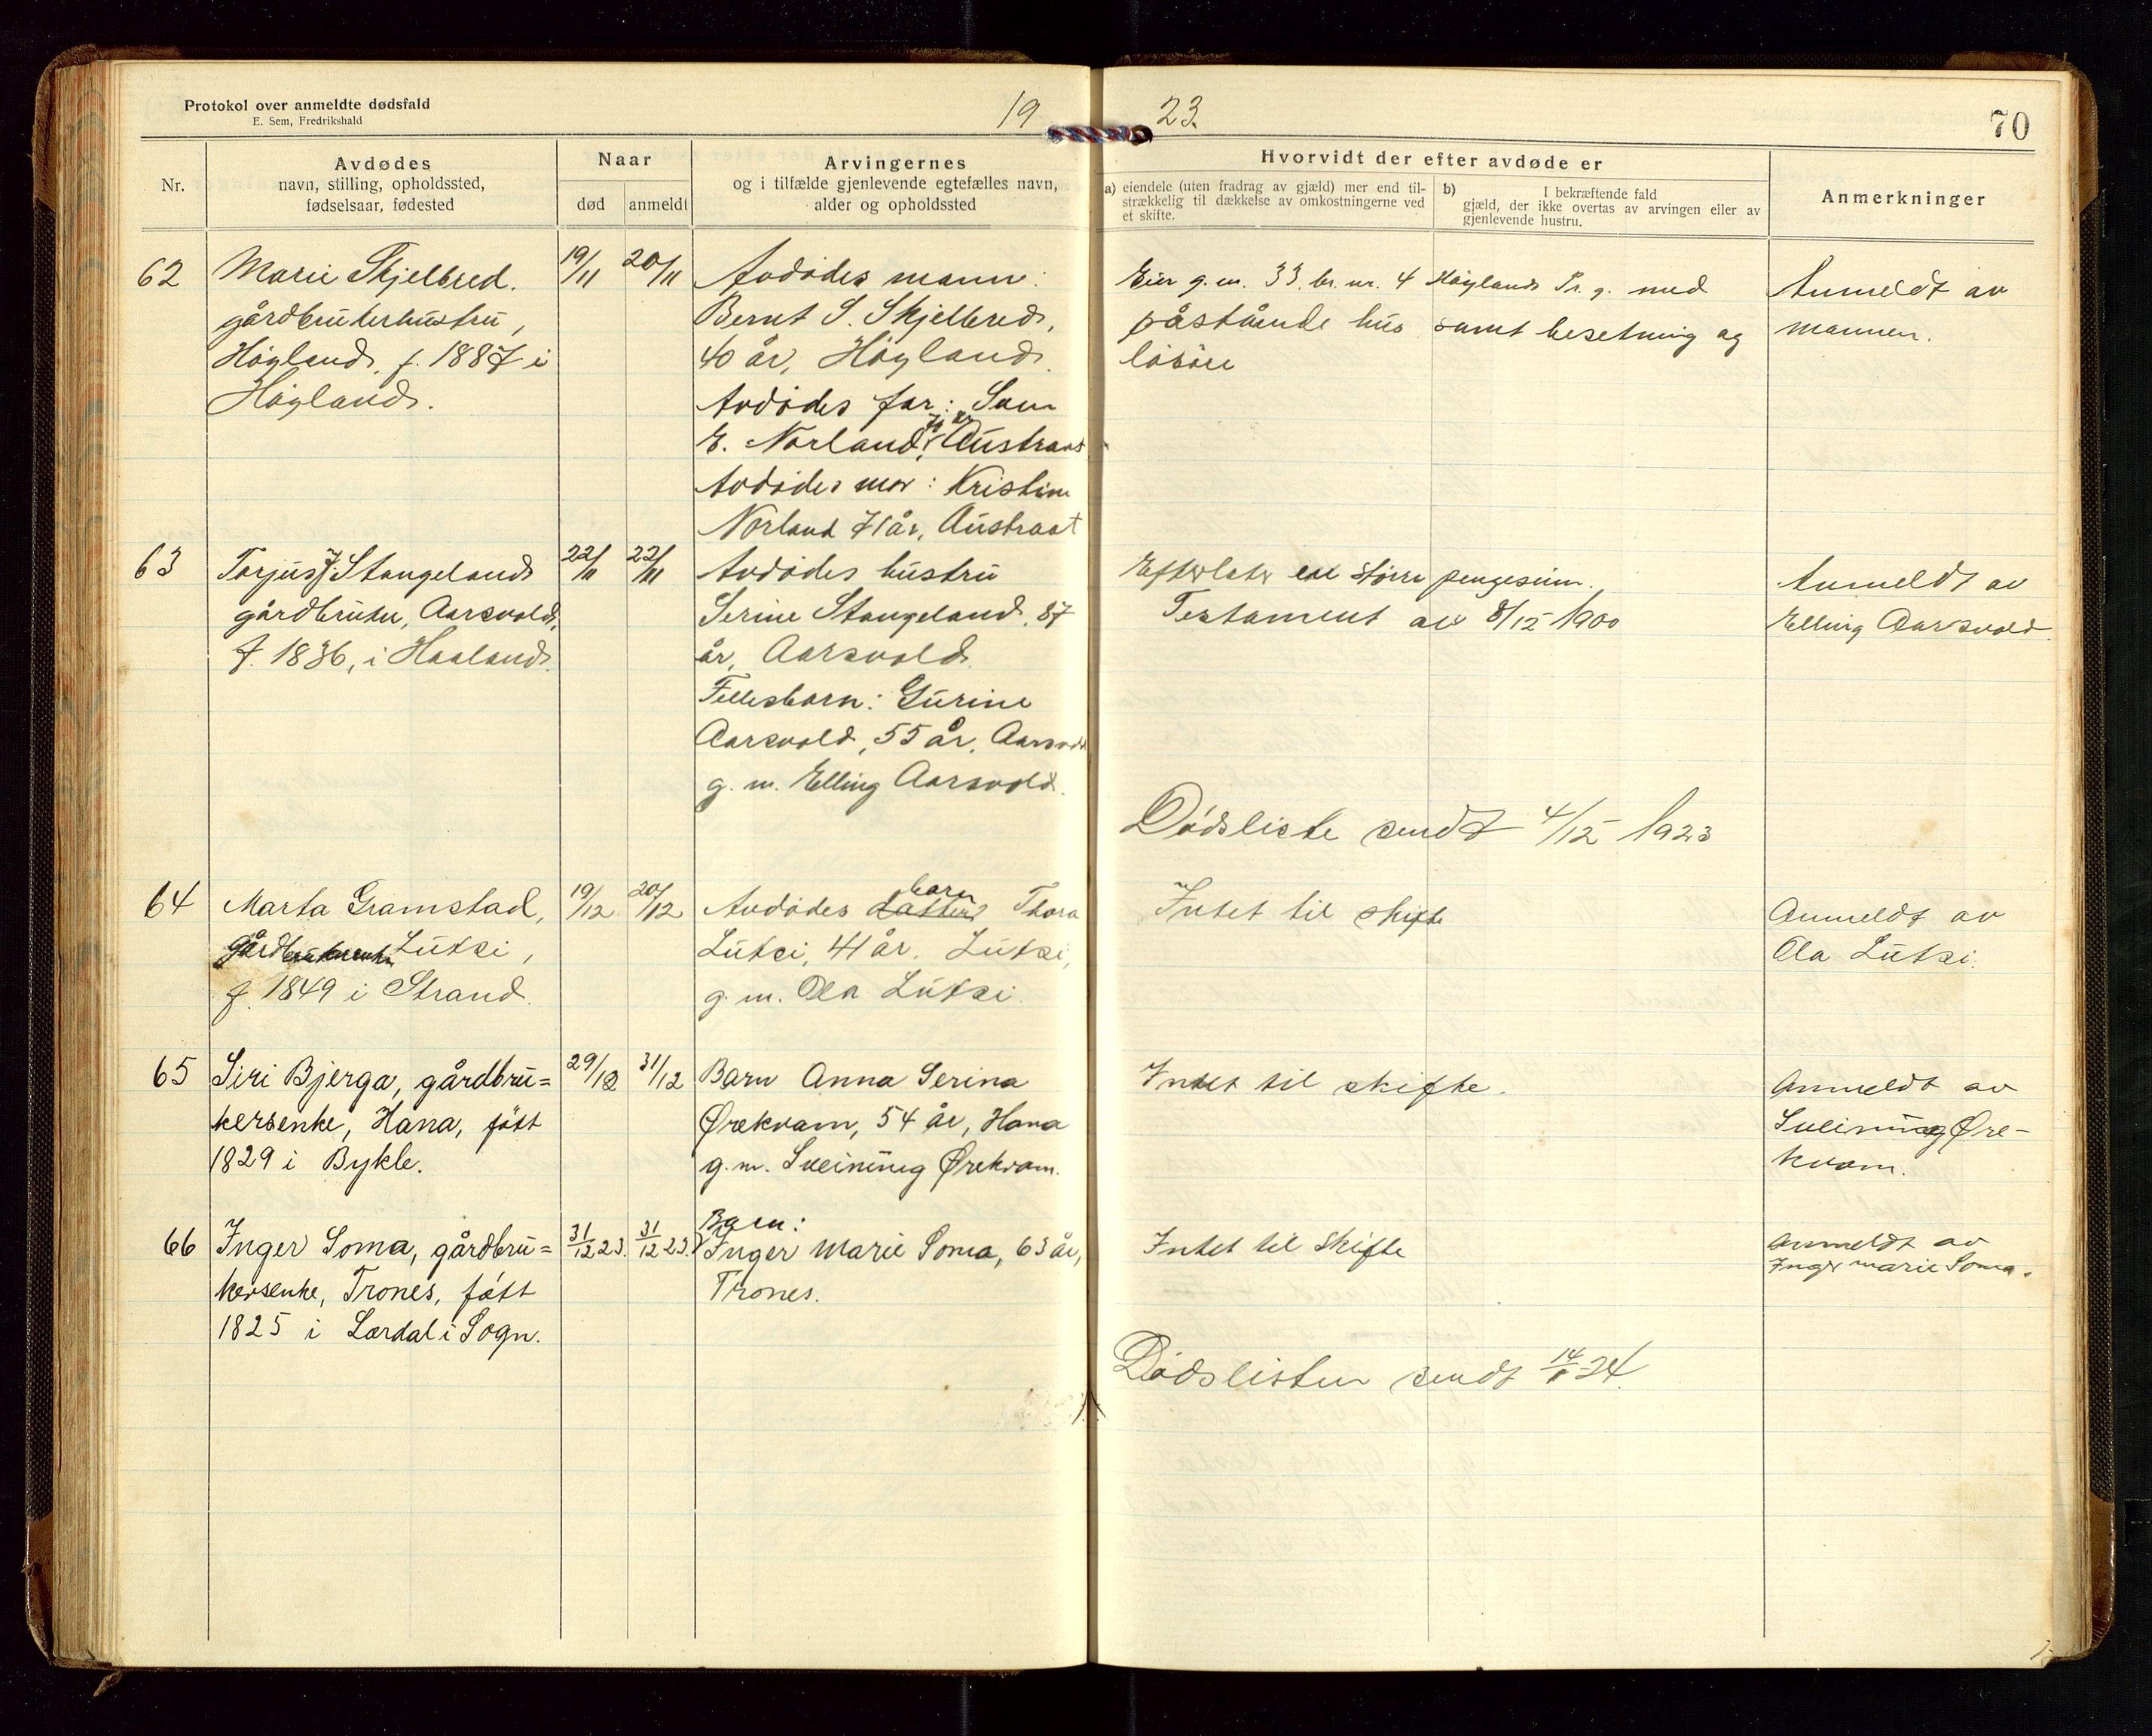 Protokol over anmeldte dødsfald
E. Sem, Fredrikshald
19 23.
70
Nr.
Avdødes
navn, stilling, opholdssted,
fødselsaar, fødested
Naar
død
anmeldt
Arvingernes
og i tilfælde gjenlevende egtefælles navn,
alder og opholdssted
Hvorvidt der efter avdøde er
a) eiendele (uten fradrag av gjæld) mer end til-
strækkelig til dækkelse av omkostningerne ved
et skifte.
b) I bekræftende fald
gjæld, der ikke overtas av arvingen eller av
gjenlevende hustru.
Anmerkninger
62
Marie Skjelbred.
gårdbrukerhustru,
Høyland, f. 1887 i
Høyland.
19/11
20/11
Avdødes mann:
Bernt S. Skjelbred,
40 år, Høyland.
Avdødes far: Sam
E. Norland, Austraat
Avdødes mor: Kristine
Norland 71 år, Austraat
Eier g. nr. 33. br. nr. 4 Høyland Pr. g. med
påstående hus samt besetning og
løsøre
Anmeldt av
mannen.
63
Torjus J. Stangeland
gårdbruker, Aarsvold,
f. 1836, i Haaland.
22/11
22/11
Avdødes hustru
Serine Stangeland, 87
år, Aarsvold.
Fellesbarn: Gurine
Aarsvold, 55 år, Aarsvold
g. m. Elling Aarsvold.
Efterlater en større pengesum.
Testament av 8/12 1900
Anmeldt av
Elling Aarsvold
Dødsliste sendt 4/12 1923
64
Marta Gramstad,
Lutsi,
f. 1849 i Strand.
19/12
20/12
barn
Avdødes datter Thora
Lutsi, 41 år. Lutsi,
g. m. Ola Lutsi
Intet til skifte
Anmeldt av
Ola Lutsi.
65
Siri Bjerga, gårdbru=
kersenke, Hana, født
1829 i Bykle.
29/12
31/12
Barn Anna Serina
Ørekvam, 54 år, Hana
g. m. Sveinung Ørekvam.
Intet til skifte.
Anmeldt av
Sveinung Øre-
kvam.
66
Inger Soma, gårdbru=
kersenke, Trones, født
1825 i Lærdal i Sogn.
31/12 23.
31/12 23.
Barn:
Inger Marie Soma, 63 år,
Trones.
Intet til skifte
Anmeldt av
Inger Marie Soma.
Dødslisten sendt 14/1 24.